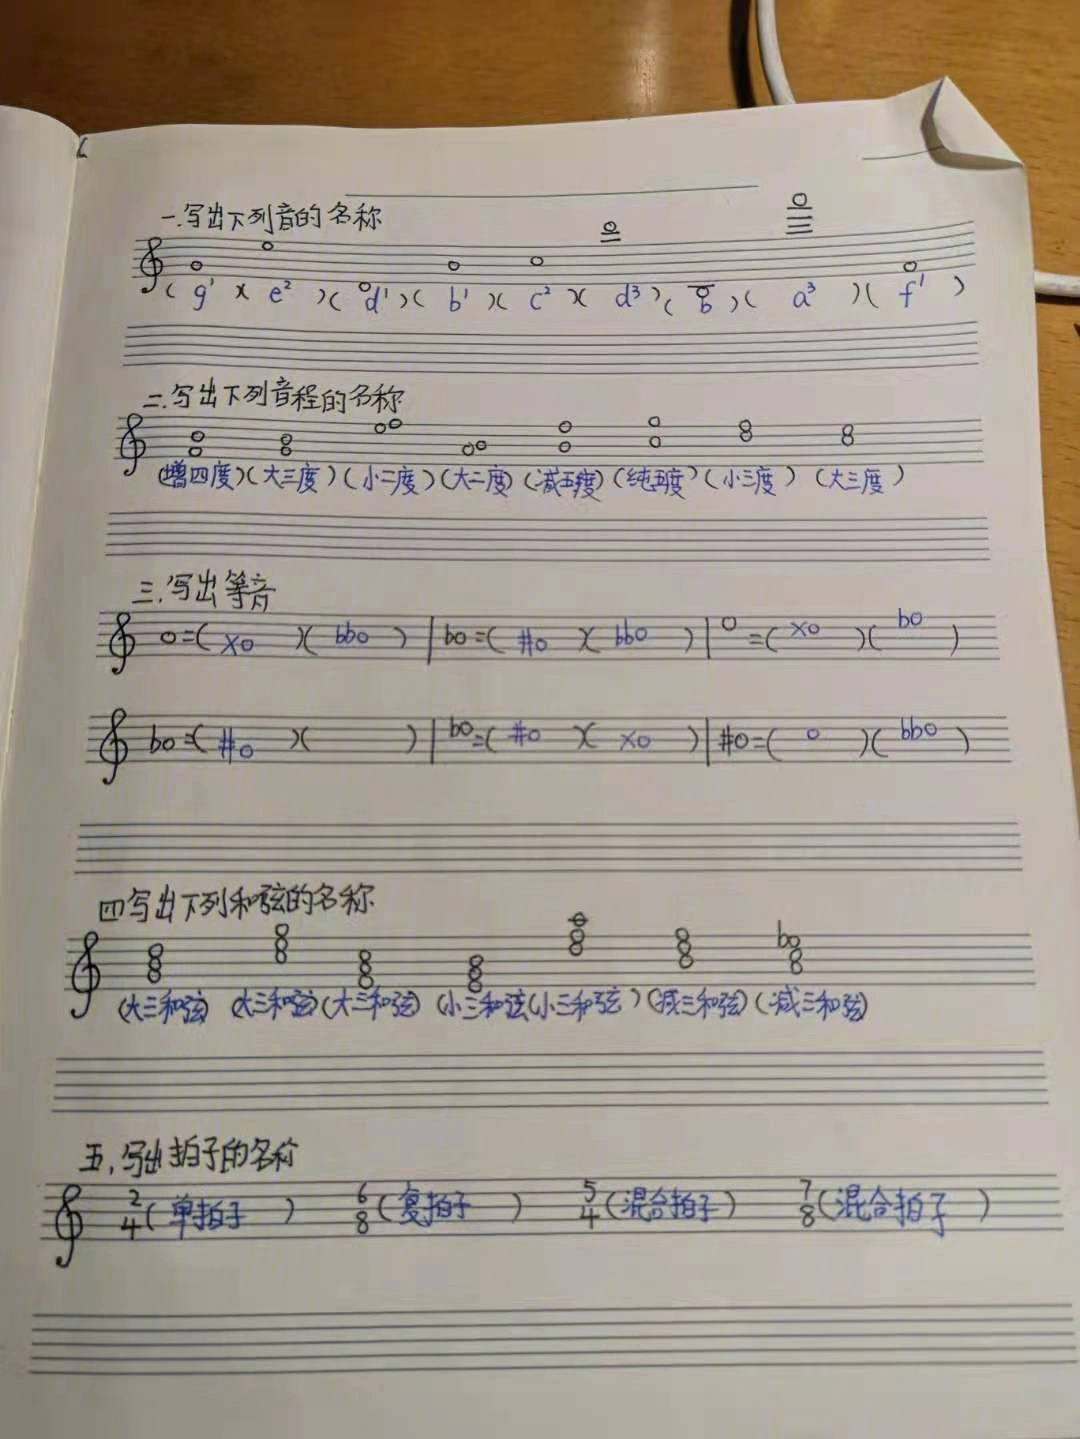 一.写出下列音的名称
( g¹ )( e² )( d¹ )( b¹ )( c² )( d³ )( b )( a³ )( f¹ )
二.写出下列音程的名称
(增四度)(大三度)(小二度)(大二度)(减五度)(纯五度)(小三度)(大三度)
三.写出等音
=( x )( bb ) | b =( # )( bb ) | =( x )( b )
b =( # )( ) | b =( # )( x ) | # =( )( bb )
四写出下列和弦的名称
b
(大三和弦)(大三和弦)(大三和弦)(小三和弦)(小三和弦)(减三和弦)(减三和弦)
五.写出拍子的名称
2/4(单拍子) 6/8(复拍子) 5/4(混合拍子) 7/8(混合拍子)